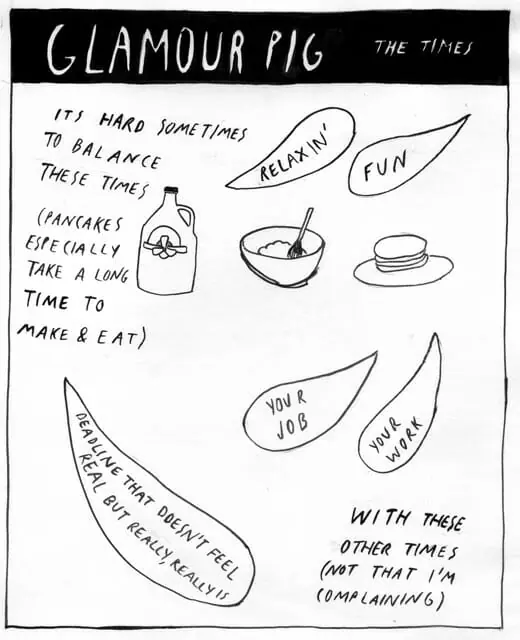 GLAMOUR PIG
THE TIMES
ITS HARD SOMETIMES
TO BALANCE
THESE TIMES
RELAXIN'
FUN
(PANCAKES
ESPECIALLY
TAKE A LONG
TIME TO
MAKE & EAT)
YOUR
JOB
YOUR
WORK
DEADLINE THAT DOESN'T FEEL
REAL BUT REALLY, REALLY IS
WITH THESE
OTHER TIMES
(NOT THAT I'M
COMPLAINING)